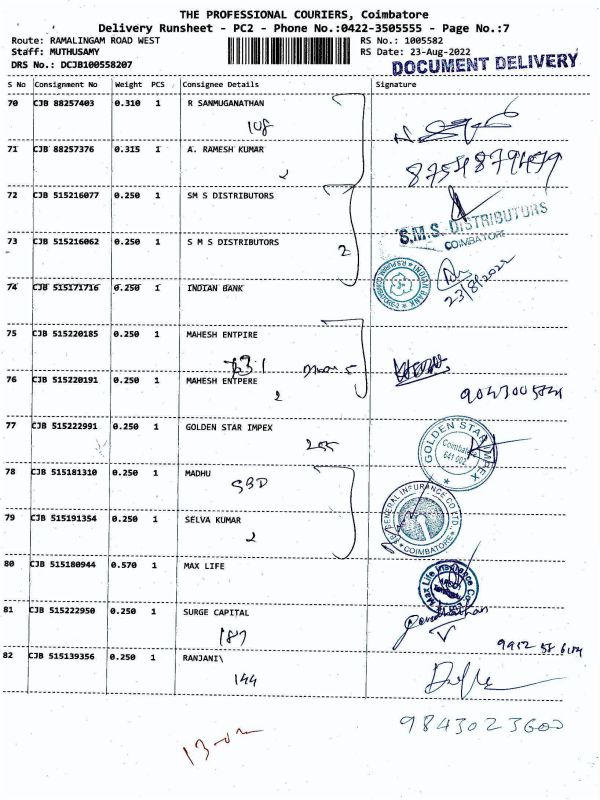 THE PROFESSIONAL COURIERS, Coimbatore
Delivery Runsheet - PC2 - Phone No.:0422-3505555 - Page No.:7
Route: RAMALINGAM ROAD WEST RS No.: 1005582
Staff: MUTHUSAMY RS Date: 23-Aug-2022
DRS No.: DCJB100558207 DOCUMENT DELIVERY
S No Consignment No Weight PCS Consignee Details Signature
70 CJB 88257403 0.310 1 R SANMUGANATHAN
108
71 CJB 88257376 0.315 1 A. RAMESH KUMAR
8754879479
2
72 CJB 515216077 0.250 1 SM S DISTRIBUTORS
S.M.S. DISTRIBUTORS
COIMBATORE
73 CJB 515216062 0.250 1 S M S DISTRIBUTORS
2
74 CJB 515171716 0.250 1 INDIAN BANK
INDIAN BANK
23/8/2022
75 CJB 515220185 0.250 1 MAHESH ENTPIRE
731
76 CJB 515220191 0.250 1 MAHESH ENTPERE
2
77 CJB 515222991 0.250 1 GOLDEN STAR IMPEX
255
GOLDEN STAR IMPEX
Coimbatore
641 002
78 CJB 515181310 0.250 1 MADHU
SBD
GENERAL INSURANCE CO LTD.
COIMBATORE
79 CJB 515191354 0.250 1 SELVA KUMAR
2
80 CJB 515180944 0.570 1 MAX LIFE
Max Life Insurance Co.
81 CJB 515222950 0.250 1 SURGE CAPITAL
187
82 CJB 515139356 0.250 1 RANJANI\
144
9843023600